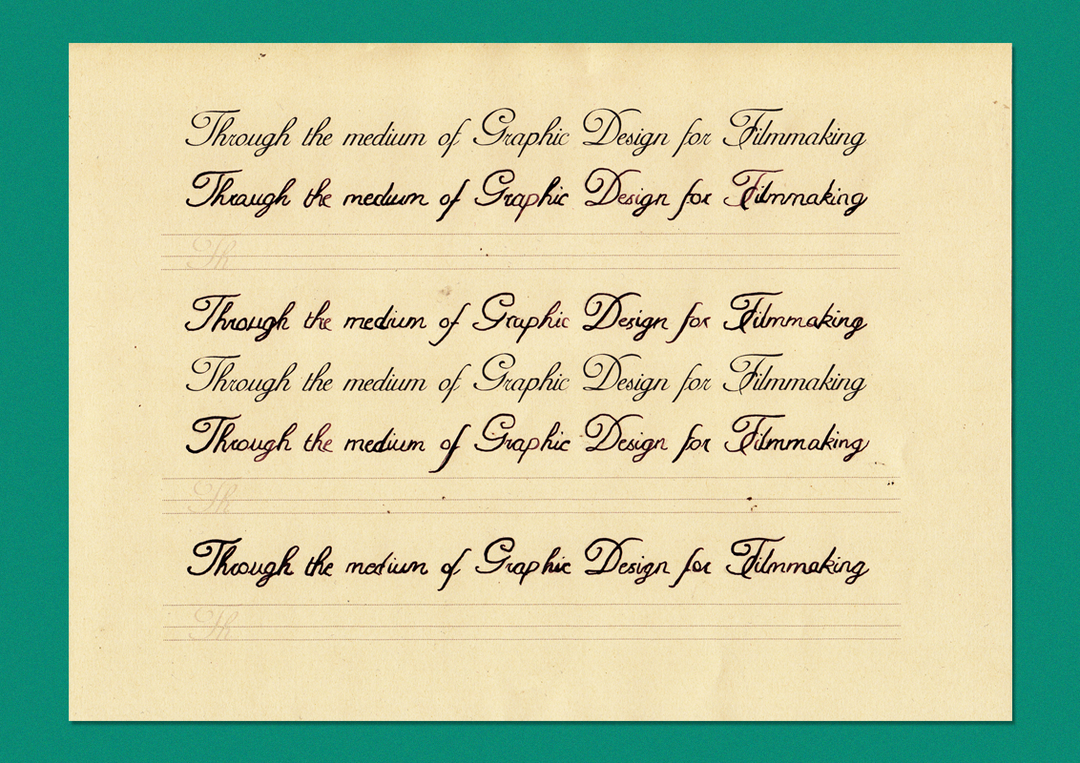 Through the medium of Graphic Design for Filmmaking
Through the medium of Graphic Design for Filmmaking
Th
Through the medium of Graphic Design for Filmmaking
Through the medium of Graphic Design for Filmmaking
Through the medium of Graphic Design for Filmmaking
Th
Through the medium of Graphic Design for Filmmaking
Th